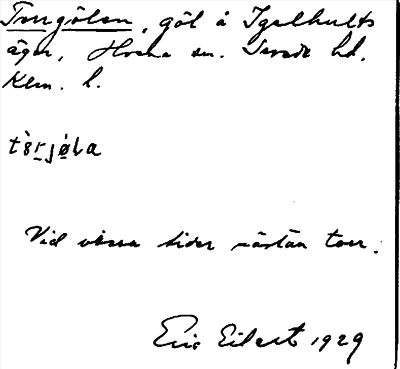 Torrgölen, göl å Igelhults
ägor, Hvena sn. Sevede hd.
Klm. l.
Vid vissa tider nästan torr.
Eric Eilert 1929